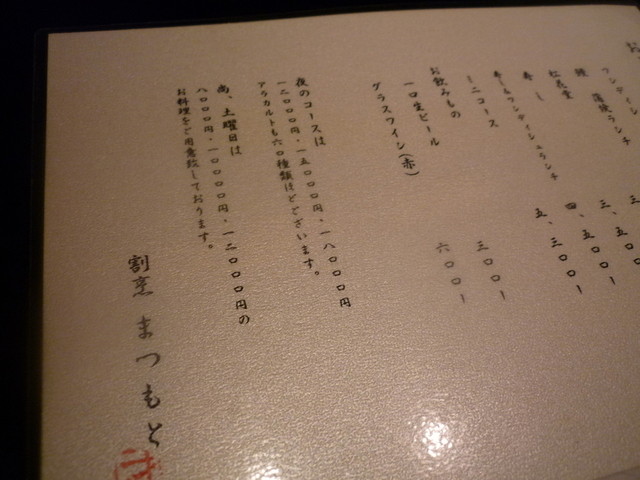 ワンデイシ
薄膜ランチ
松花堂
寿し
寿し&ワンディッシュランチ
ミニコース
お飲みもの
一口生ビール
グラスワイン(赤)
三、五〇〇ー
三、五〇〇ー
四、五〇〇ー
五、三〇〇ー
三〇〇ー
六〇〇ー
夜のコースは
一二〇〇〇円・一五〇〇〇円・一八〇〇〇円
アラカルトも六〇種類ほどございます。
尚、土曜日は
八〇〇〇円・一〇〇〇〇円・一二〇〇〇円の
お料理をご用意致しております。
割烹 まつもと